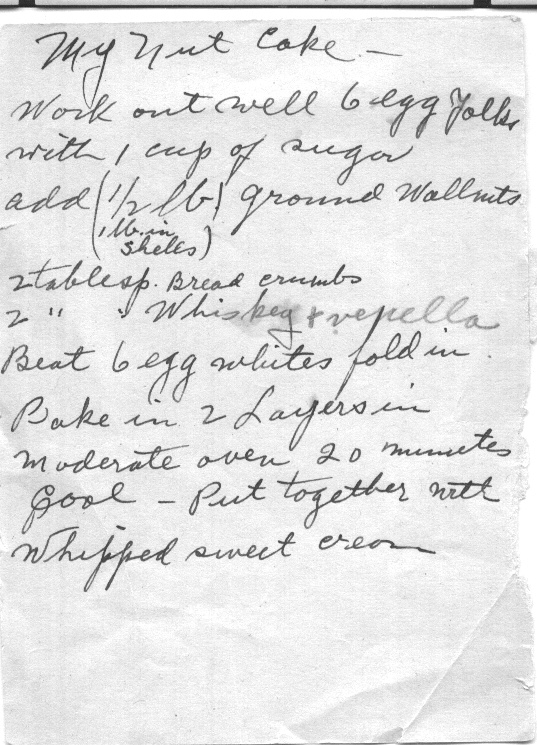 My Nut Cake —
Work out well 6 egg Yolks
with 1 cup of sugar
add (1/2 lb) ground Wallnuts
(1 lb. in
shells)
2 tablesp. Bread crumbs
2 " " Whiskey + venella
Beat 6 egg whites fold in.
Bake in 2 Layers in
Moderate oven 20 minutes
Cool — Put together with
Whipped sweet cream